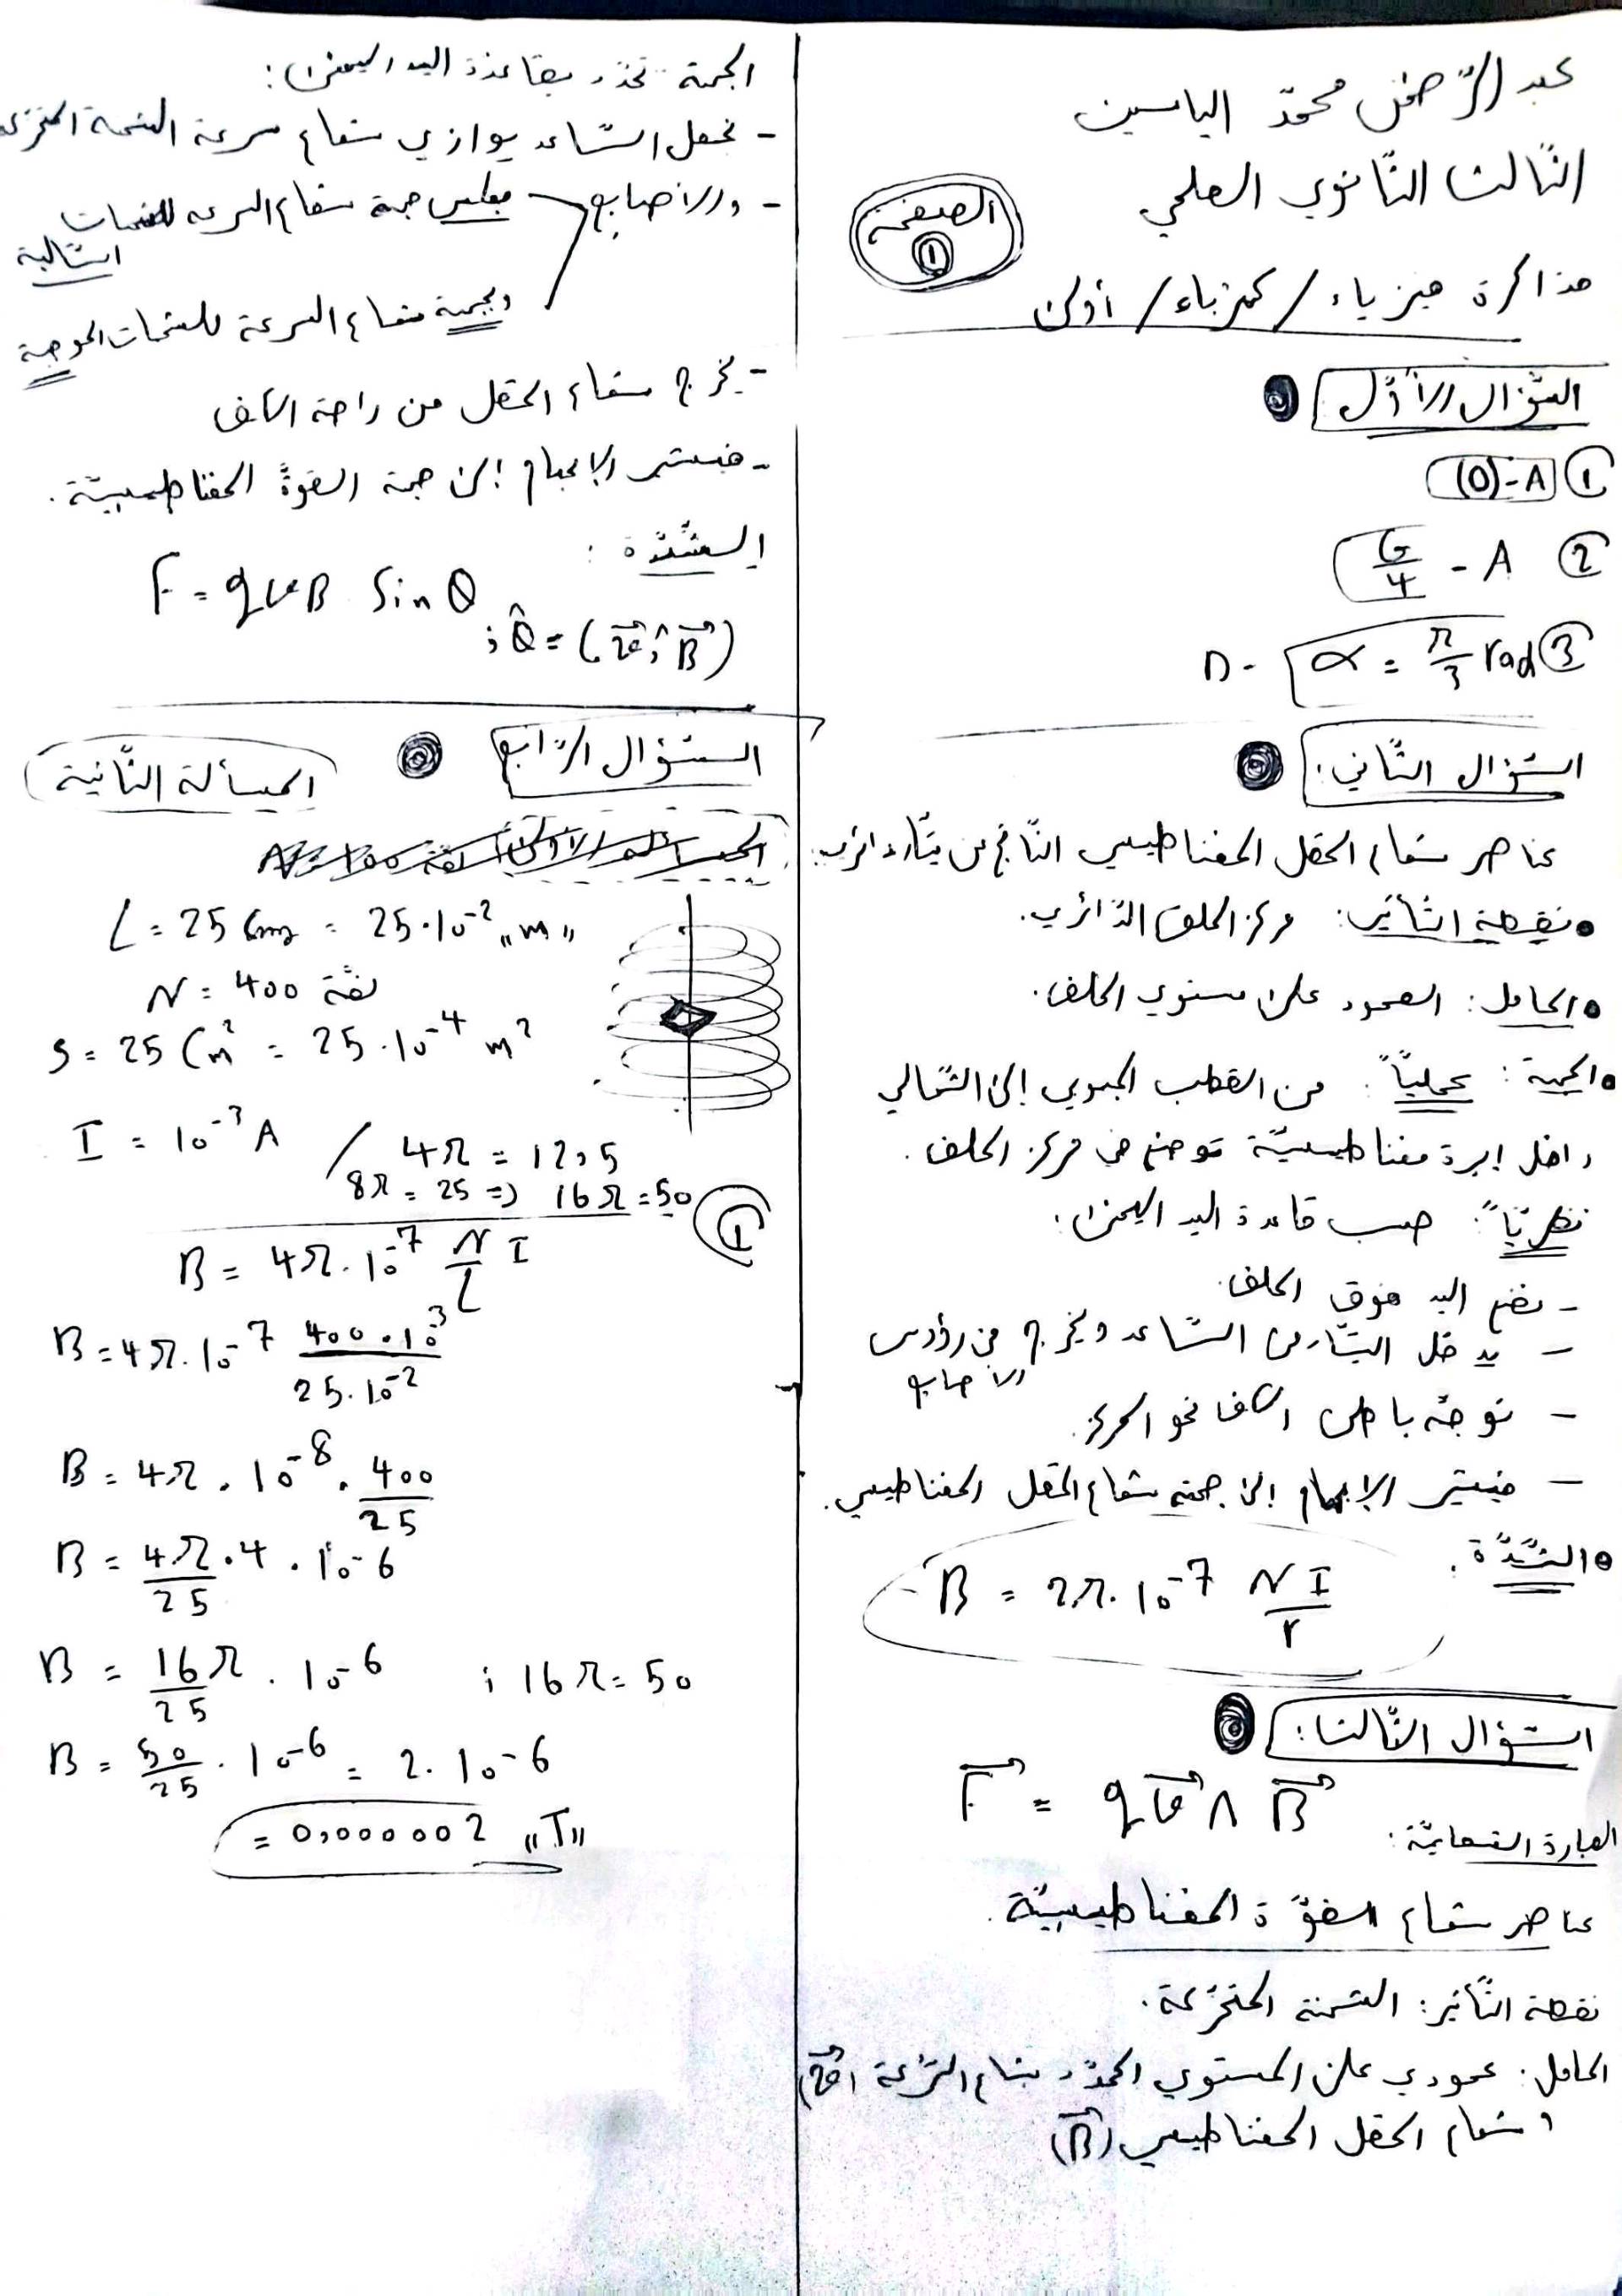 عبد الرّحمن محمّد الياسين
الثّالث الثّانوي العلمي
الصفحة
①
مذاكرة فيزياء / كهرباء / أولى
السّؤال الأوّل
① A - (0)
② A - G/4
③ D - α = π/3 rad
السّؤال الثّاني:
عناصر شعاع الحقل المغناطيسي النّاتج عن تيّار دائري:
• نقطة التّأثير: مركز الملف الدّائري.
• الحامل: العمود على مستوي الملف.
• الجهة: عمليّاً: من القطب الجنوبي إلى الشّمالي
داخل إبرة مغناطيسيّة توضع في مركز الملف.
نظريّاً: حسب قاعدة اليد اليمنى:
- نضع اليد فوق الملف.
- يدخل التيّار من السّاعد ويخرج من رؤوس
الأصابع
- نوجّه باطن الكف نحو المركز.
- فيشير الإبهام إلى جهة شعاع الحقل المغناطيسي.
• الشّدّة:
B = 2π.10^-7 NI/r
السّؤال الثّالث:
F⃗ = q v⃗ Λ B⃗
العبارة الشعاعيّة:
عناصر شعاع القوّة المغناطيسيّة.
نقطة التّأثير: الشحنة المتحرّكة.
الحامل: عمودي على المستوي المحدّد بشعاع السّرعة (v⃗)
و شعاع الحقل المغناطيسي (B⃗)
الجهة تحدّد بقاعدة اليد اليمنى:
- نجعل السّاعد يوازي شعاع سرعة الشحنة المتحرّكة
- والأصابع بعكس جهة شعاع السرعة للشحنات
السّالبة
وبجهة شعاع السرعة للشحنات الموجبة
- يخرج شعاع الحقل من راحة الكف
- فيشير الإبهام إلى جهة القوّة المغناطيسيّة.
الشّدّة:
F = qvB Sin θ
; θ̂ = (v⃗ ; B⃗)
السّؤال الرّابع
المسألة الثّانية
L = 25 Cm = 25.10^-2 "m"
N = 400 لفّة
S = 25 Cm² = 25.10^-4 m²
I = 10^-3 A / 4π = 12,5
8π = 25 => 16π = 50
①
B = 4π.10^-7 N/L I
B = 4π.10^-7 400.10^-3 / 25.10^-2
B = 4π . 10^-8 . 400/25
B = 4π/25 .4 . 10^-6
B = 16π/25 . 10^-6 ; 16π = 50
B = 50/25 . 10^-6 = 2. 10^-6
= 0,000002 "T"